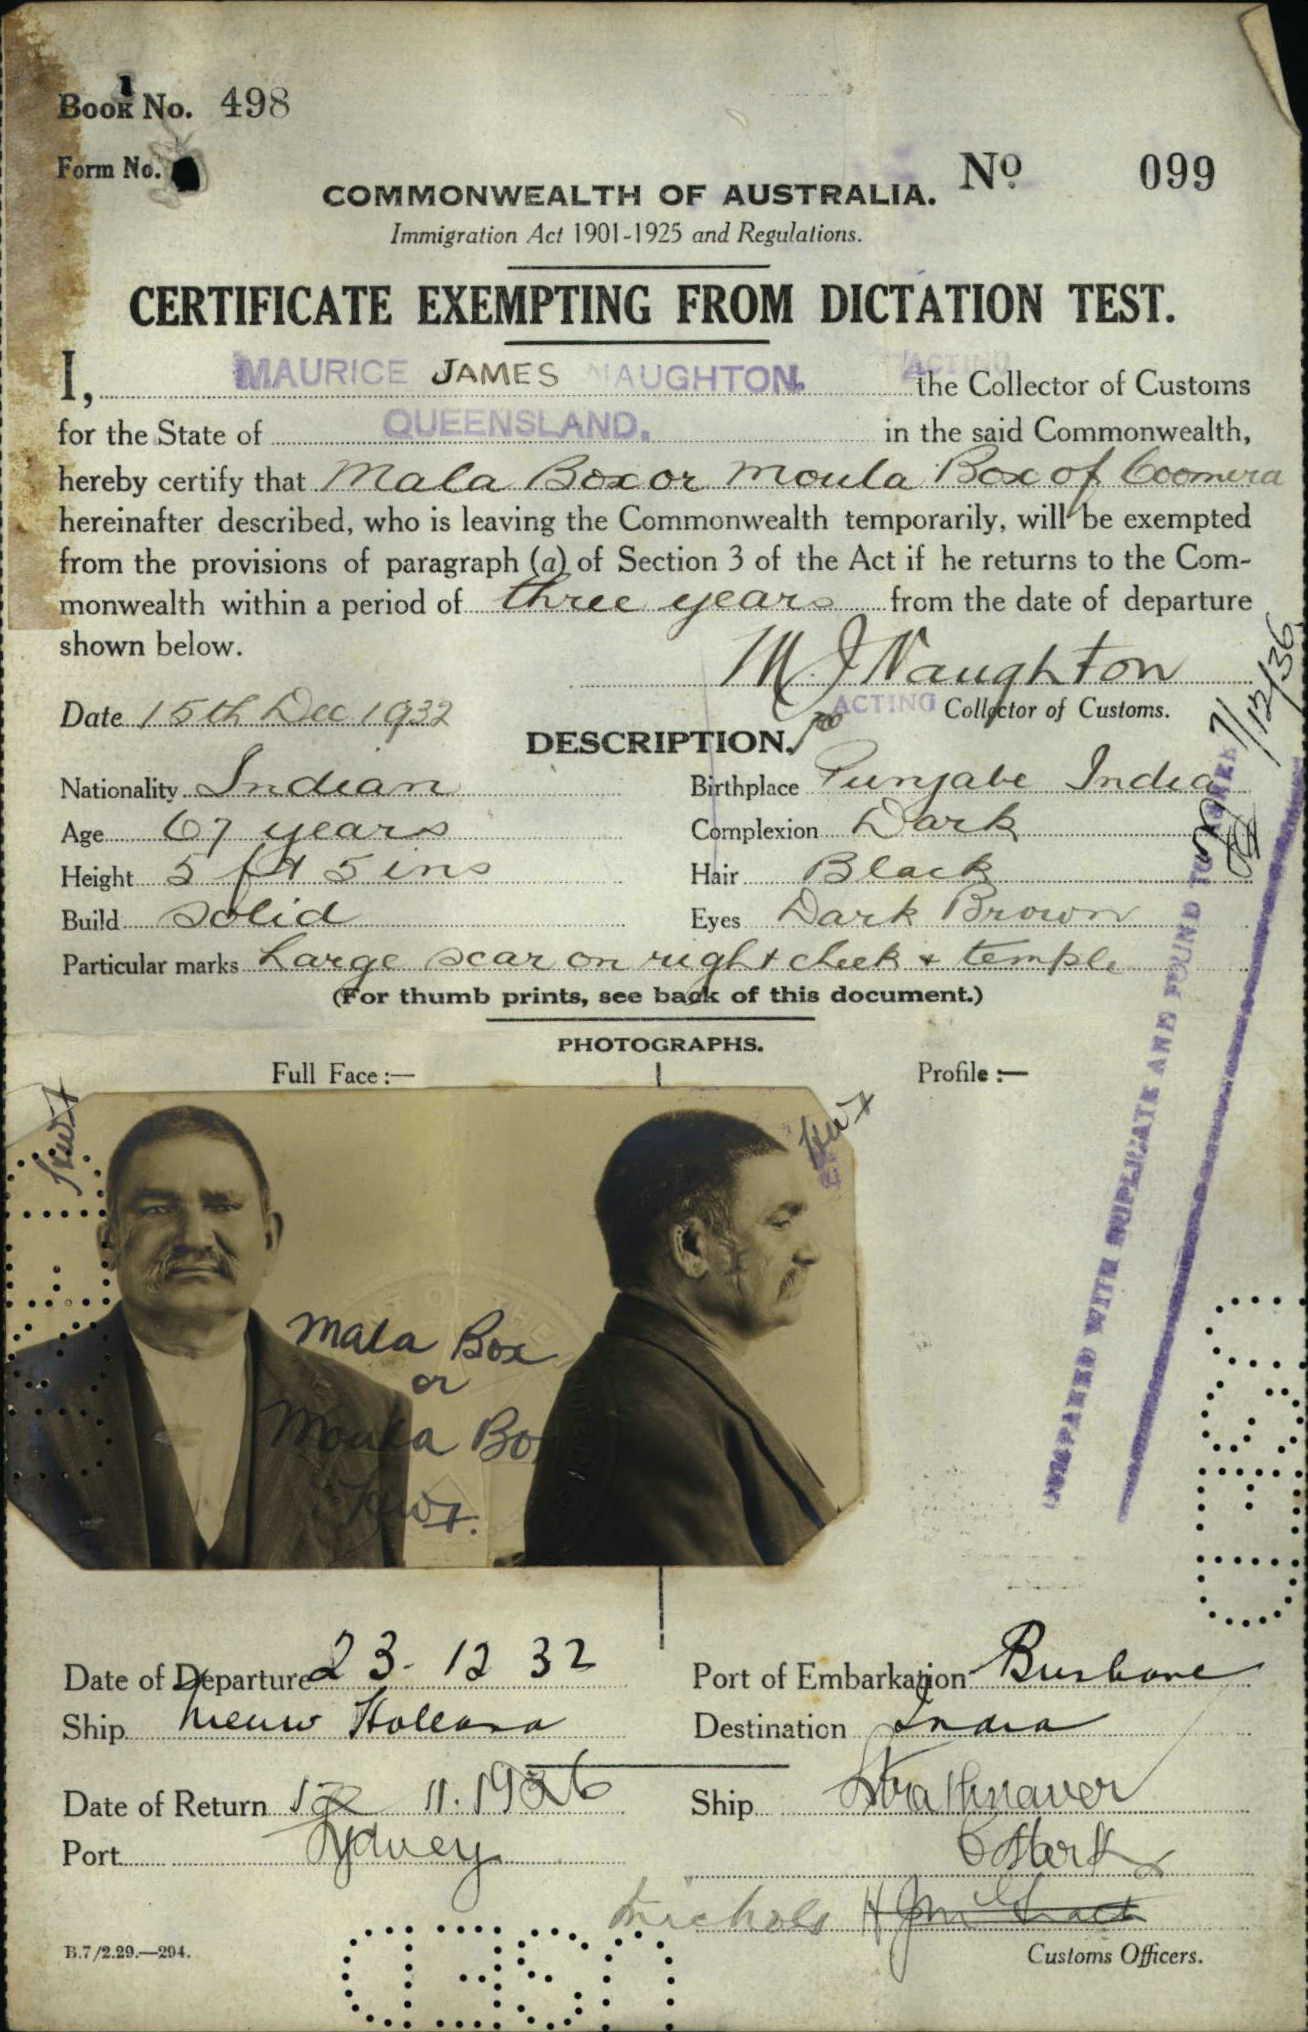 Book No. 498
1
Form No.
COMMONWEALTH OF AUSTRALIA.
No. 099
Immigration Act 1901-1925 and Regulations.
CERTIFICATE EXEMPTING FROM DICTATION TEST.
ACTING
I, MAURICE JAMES NAUGHTON. the Collector of Customs
for the State of QUEENSLAND. in the said Commonwealth,
hereby certify that Mala Box or Moula Box of Coomera
hereinafter described, who is leaving the Commonwealth temporarily, will be exempted
from the provisions of paragraph (a) of Section 3 of the Act if he returns to the Com-
monwealth within a period of three years from the date of departure
shown below.
M J Naughton
Date 15th Dec 1932
ACTING Collector of Customs.
DESCRIPTION.
Nationality Indian
Birthplace Punjabe India
Age 67 years
Complexion Dark
Height 5 ft 5 ins
Hair Black
Build Solid
Eyes Dark Brown
Particular marks Large scar on right cheek & temple
(For thumb prints, see back of this document.)
PHOTOGRAPHS.
Full Face :—
Profile :—
COMPARED WITH DUPLICATE AND FOUND TO
7/12/36
Mala Box
or
Moula Bo
Date of Departure 23. 12 32
Port of Embarkation Brisbane
Ship Nieuw Holland
Destination India
Date of Return 11. 1936
Ship Strathnaver
Port Sydney
Nichols
Customs Officers.
B.7/2.29.—294.
USED
USED